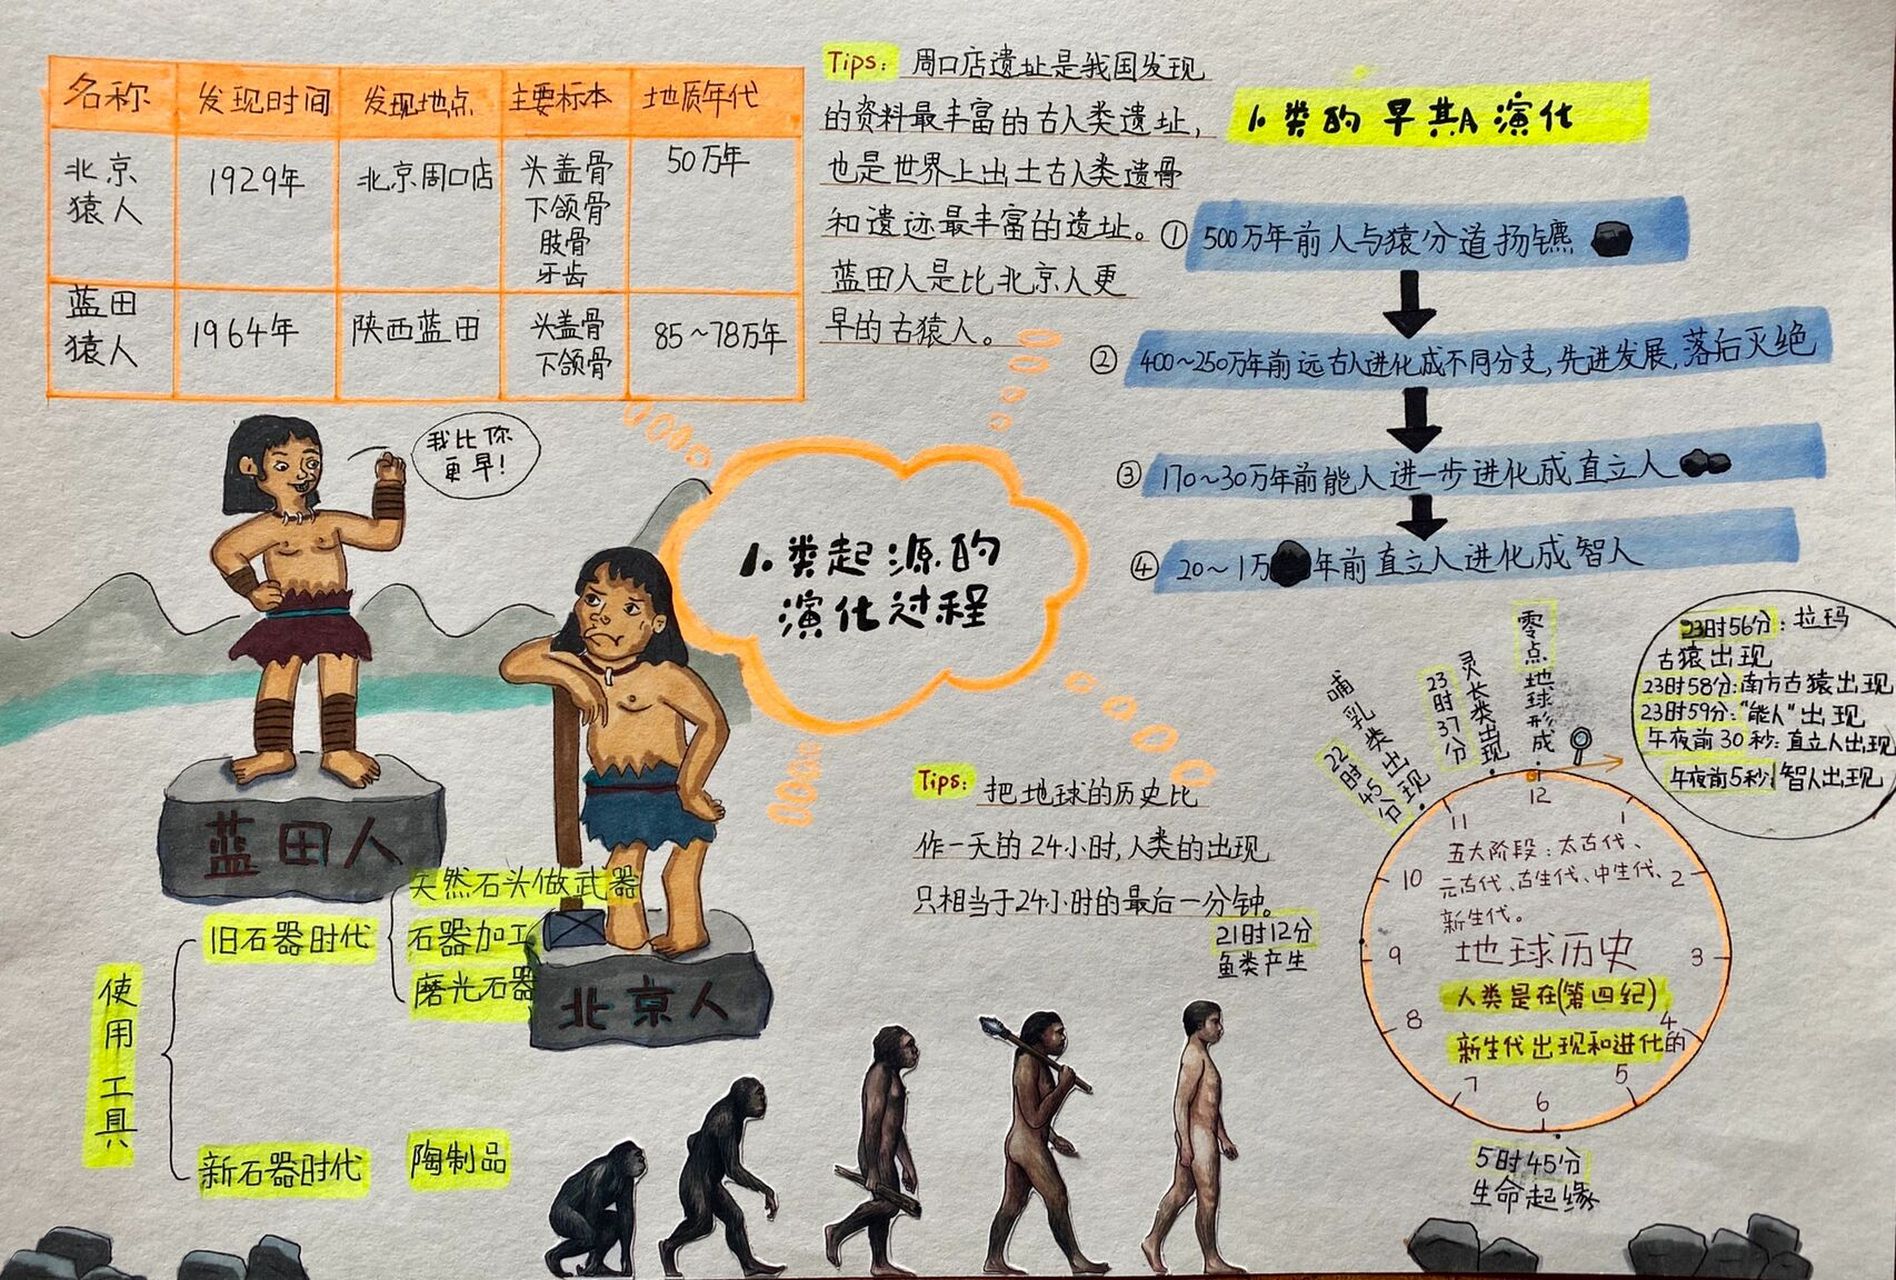 名称 发现时间 发现地点 主要标本 地质年代
北京
猿人
1929年
北京周口店
头盖骨
下颌骨
肢骨
牙齿
50万年
蓝田
猿人
1964年
陕西蓝田
头盖骨
下颌骨
85~78万年
Tips: 周口店遗址是我国发现
的资料最丰富的古人类遗址,
也是世界上出土古人类遗骨
和遗迹最丰富的遗址。
蓝田人是比北京人更
早的古猿人。
人类的早期演化
① 500万年前人与猿分道扬镳
② 400~250万年前远古人进化成不同分支,先进发展,落后灭绝
③ 170~30万年前能人进一步进化成直立人
④ 20~1万年前直立人进化成智人
我比你
更早!
人类起源的
演化过程
蓝田人
北京人
使用工具
旧石器时代
天然石头做武器
石器加工
磨光石器
新石器时代
陶制品
Tips: 把地球的历史比
作一天的24小时,人类的出现
只相当于24小时的最后一分钟。
21时12分
鱼类产生
22时45分
哺乳类出现
23时37分
灵长类出现
零点地球形成
23时56分:拉玛
古猿出现
23时58分:南方古猿出现
23时59分:"能人"出现
午夜前30秒:直立人出现
午夜前5秒:智人出现
12
1
2
3
4
5
6
7
8
9
10
11
五大阶段:太古代、
元古代、古生代、中生代、
新生代。
地球历史
人类是在(第四纪)
新生代出现和进化的
5时45分
生命起缘